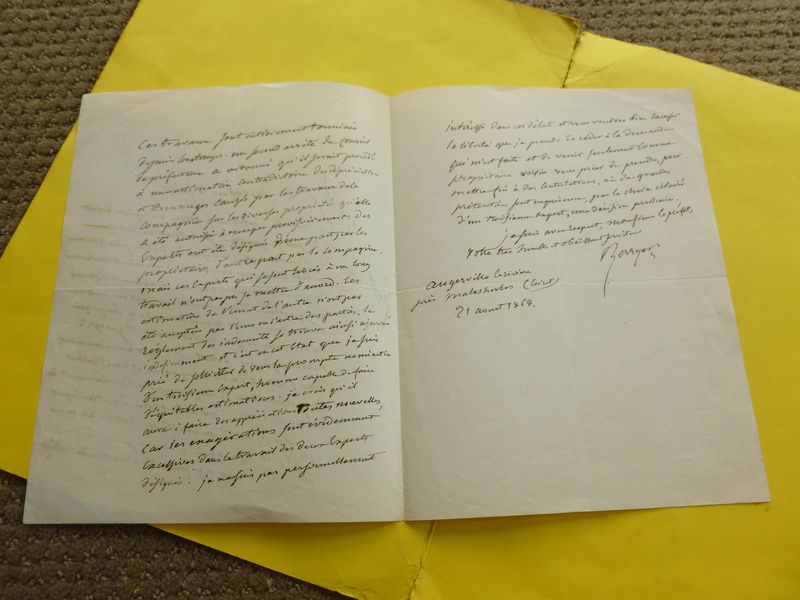 Ces travaux sont entierement terminés
depuis longtemps. un second arrêté du conseil
de préfecture a ordonné qu'il serait procédé
à une estimation contradictoire des dépréciations
et Dommages causés par les travaux de la
Compagnie sur les diverses propriétés qu'elle
a été autorisée à occuper provisoirement. Des
Experts ont été désignés d'une part par les
propriétaires, d'autre part par la Compagnie.
mais ces Experts qui se sont livrés à un long
travail n'ont pas pu se mettre d'accord. les
estimations de l'un et de l'autre n'ont pas
été acceptées par l'une ou l'autre des parties. le
règlement des indemnités se trouve ainsi ajourné
indéfiniment et c'est en cet Etat que je suis
prié de solliciter de vous la prompte nomination
d'un troisieme Expert, homme capable de faire
d'équitables estimations. je crois qu'il
aura à faire des appréciations toutes nouvelles,
Car les exagérations sont évidemment
Excessives dans le travail des deux Experts
désignés. je ne suis pas personnellement
intéressé dans ces débats et vous voudrez bien excuser
la liberté que je prends de céder à la demande
qui m'est faite et de venir seulement comme
propriétaire voisin vous prier de prendre, pour
mettre fin à des contestations, où de grandes
prétentions sont superieures, par le choix éclairé
d'un troisieme expert, une décision prochaine.
je suis avec respect, monsieur le préfet,
Votre très humble et obéissant serviteur
Berryer
augerville la riviere
près malesherbes (Loiret)
21 aoust 1868.